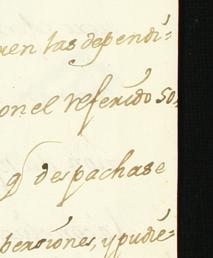 ren las dependi=
on el referido so
q̃ despachase
bersiones, y pudie=